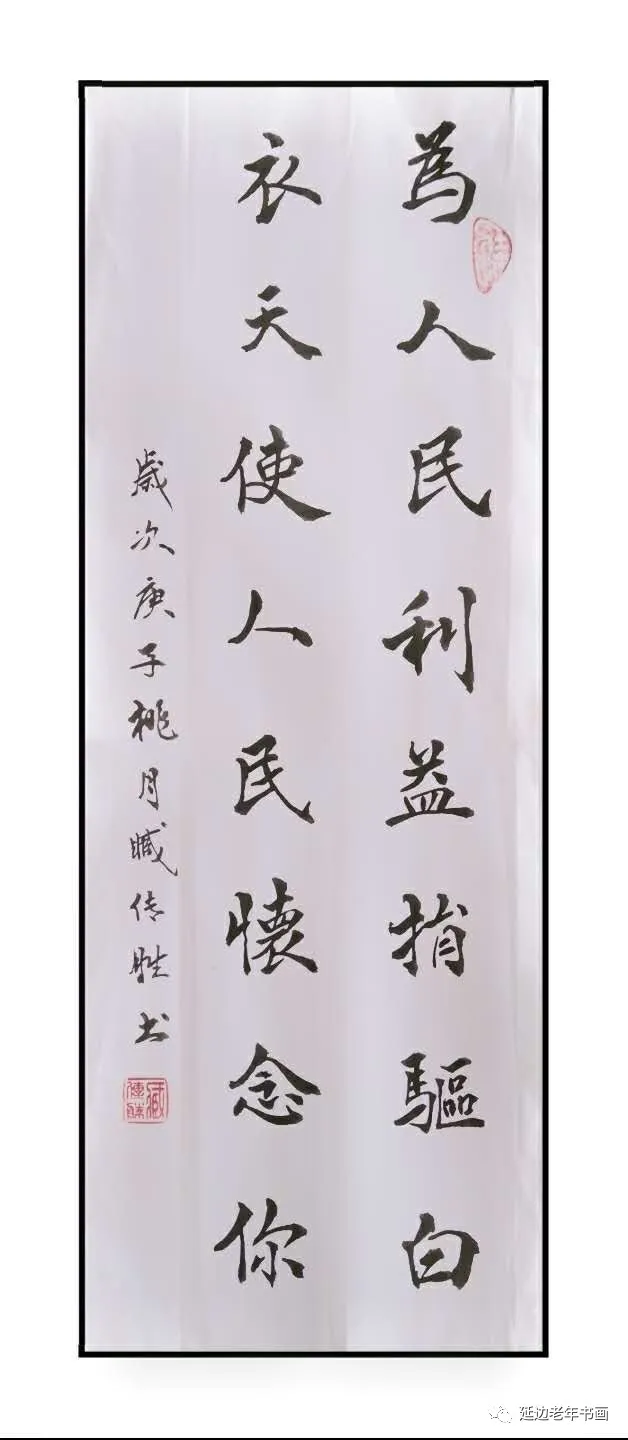 為人民利益捐驅白
衣天使人民懷念你
歲次庚子桃月臧传胜书
延边老年书画